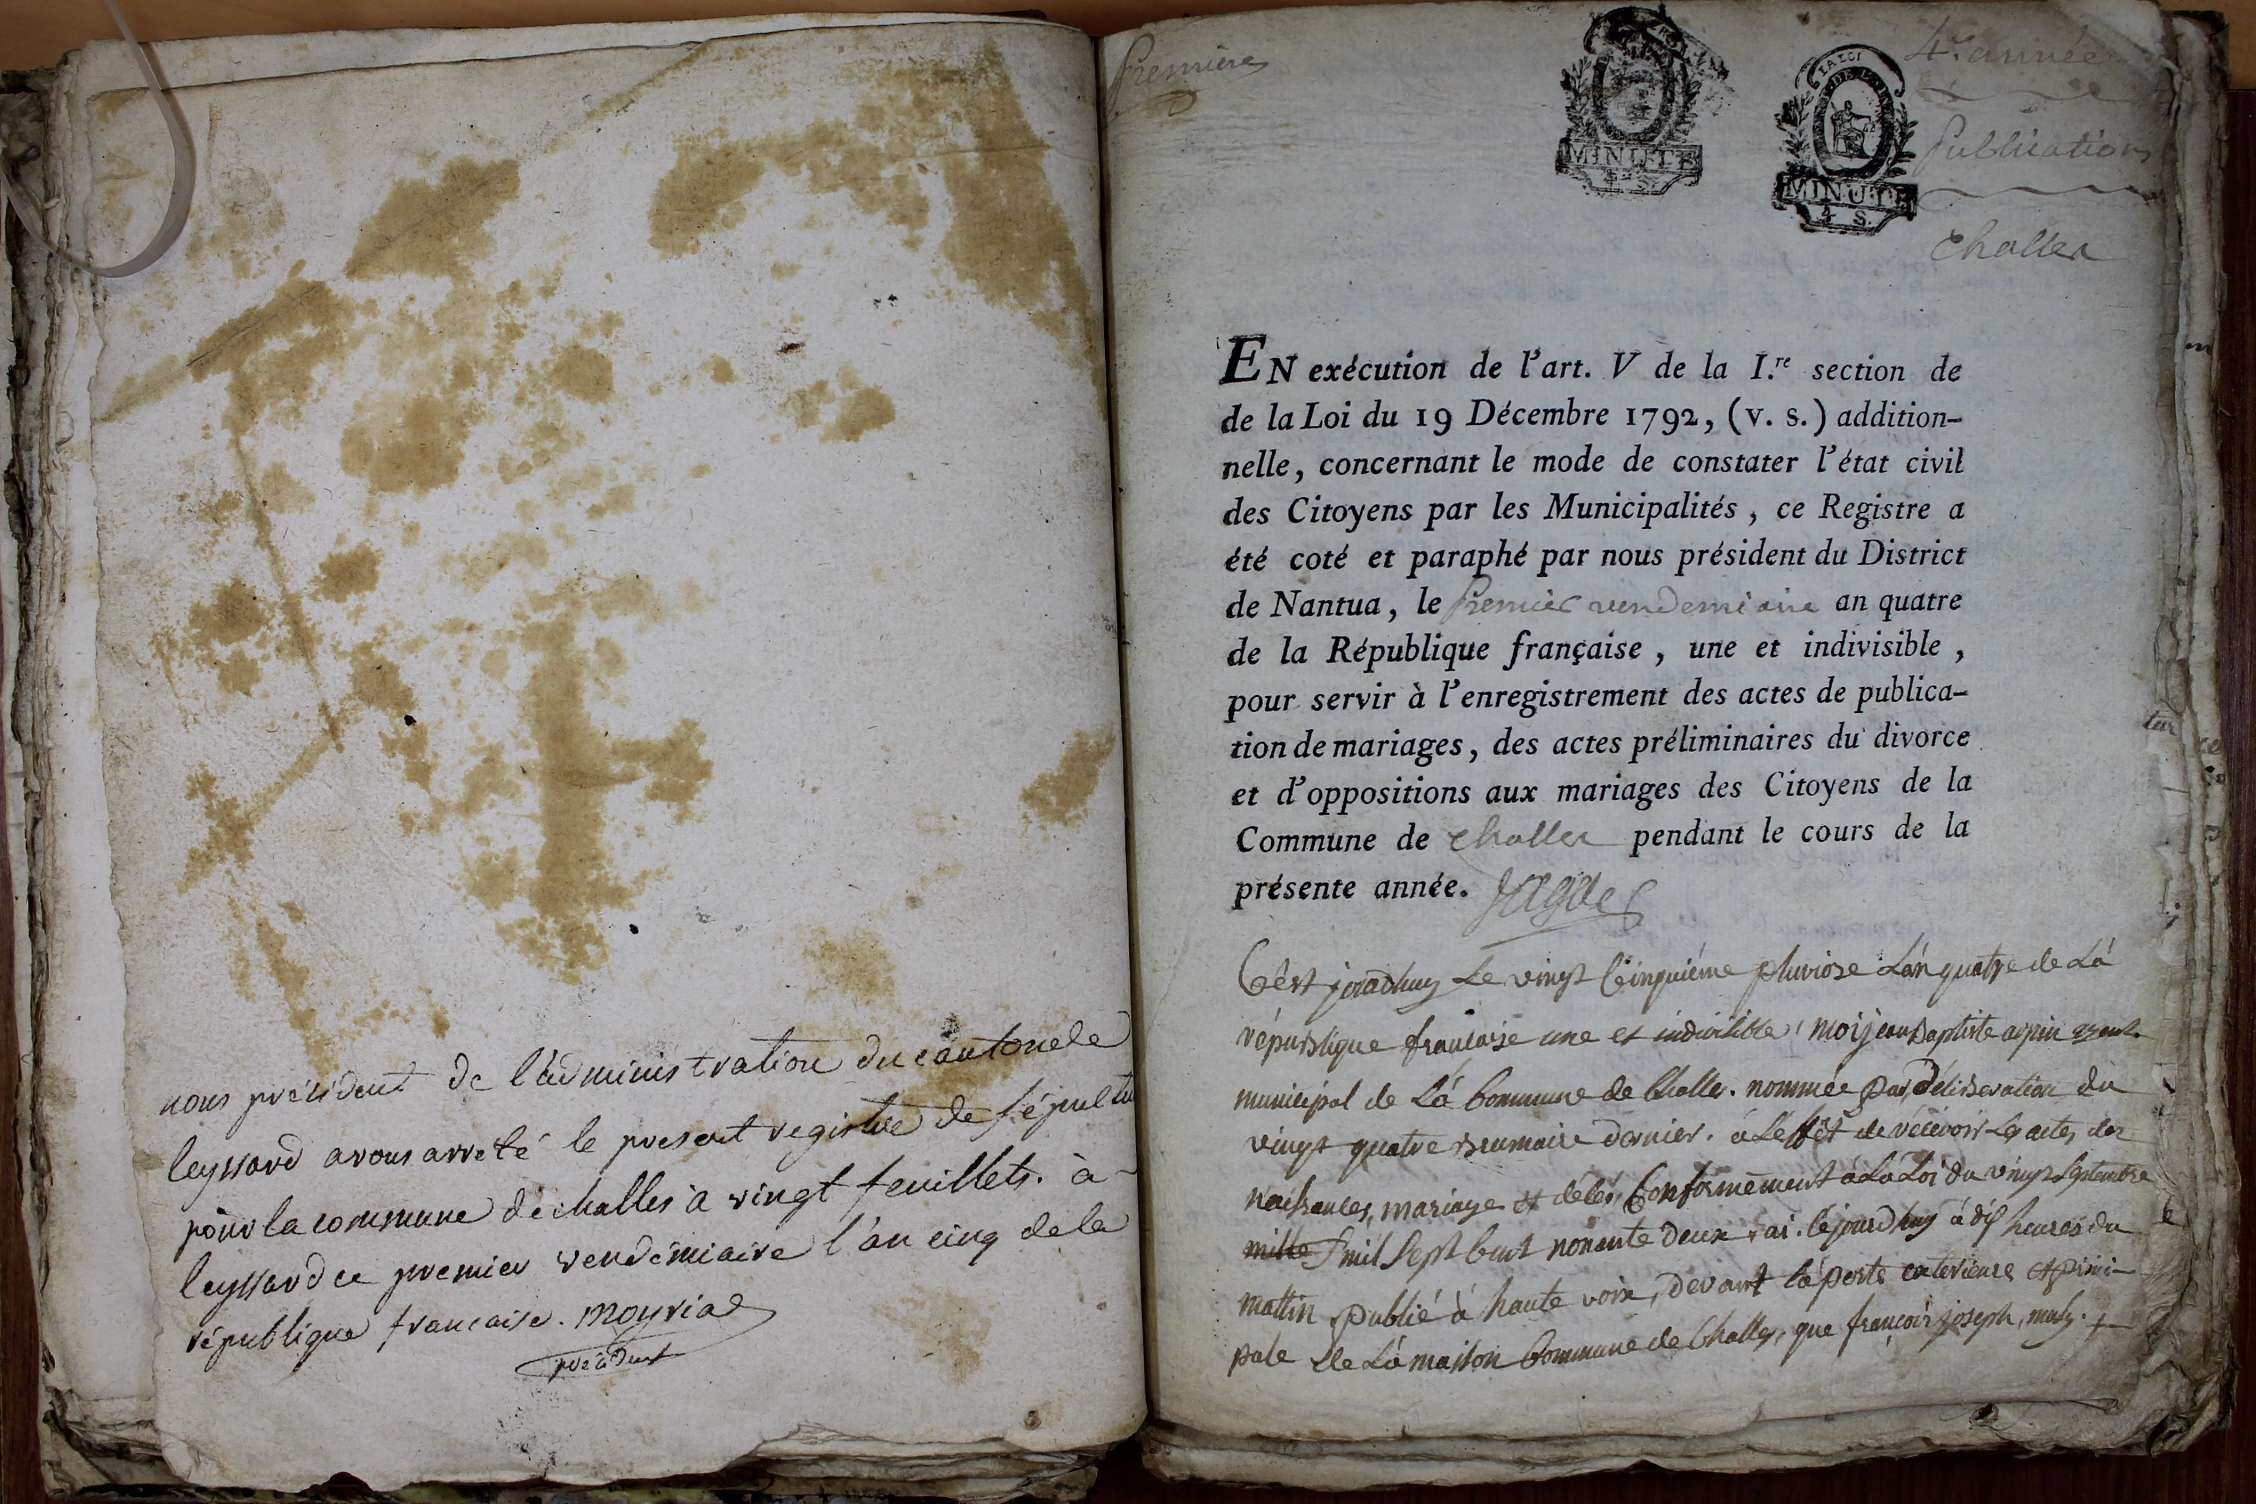 nous president de l'administration du canton de
leyssard avons arreté le present registre de sépultu
pour la commune de challes a vingt feuillets. à
leyssard ce premier vendémiaire l'an cinq de la
république francaise. moyria
président
Premiere
LA LOI
MINUTE
4 S.
MINUTE
4 S.
4e année
Publications
Challes
EN exécution de l'art. V de la I.re section de
de la Loi du 19 Décembre 1792, (v. s.) addition-
nelle, concernant le mode de constater l'état civil
des Citoyens par les Municipalités, ce Registre a
été coté et paraphé par nous président du District
de Nantua, le Premier vendemiaire an quatre
de la République française, une et indivisible,
pour servir à l'enregistrement des actes de publica-
tion de mariages, des actes préliminaires du divorce
et d'oppositions aux mariages des Citoyens de la
Commune de Challes pendant le cours de la
présente année.
Cêst jourdhuy Le vingt Cinquiéme pluviose Lán quatre de Lá
républigue francoise une et indivisible, moi jean Baptiste arpin agent
municipal de Lá Commune de Challes. nommée par, déliberation du
vingt quatre brumaire dernier. á Léffêt de récévoir Les actes des
naissances, mariages et décés, Conformément á La Loi du vingt Septembre
mille mil Sept Cent nonante deux ai. Cejourdhuy á dix heures du
mattin publié á haute voix, devant lá porte exterieure et princi-
pale de Lá maison Commune de Challes, que françois joseph,